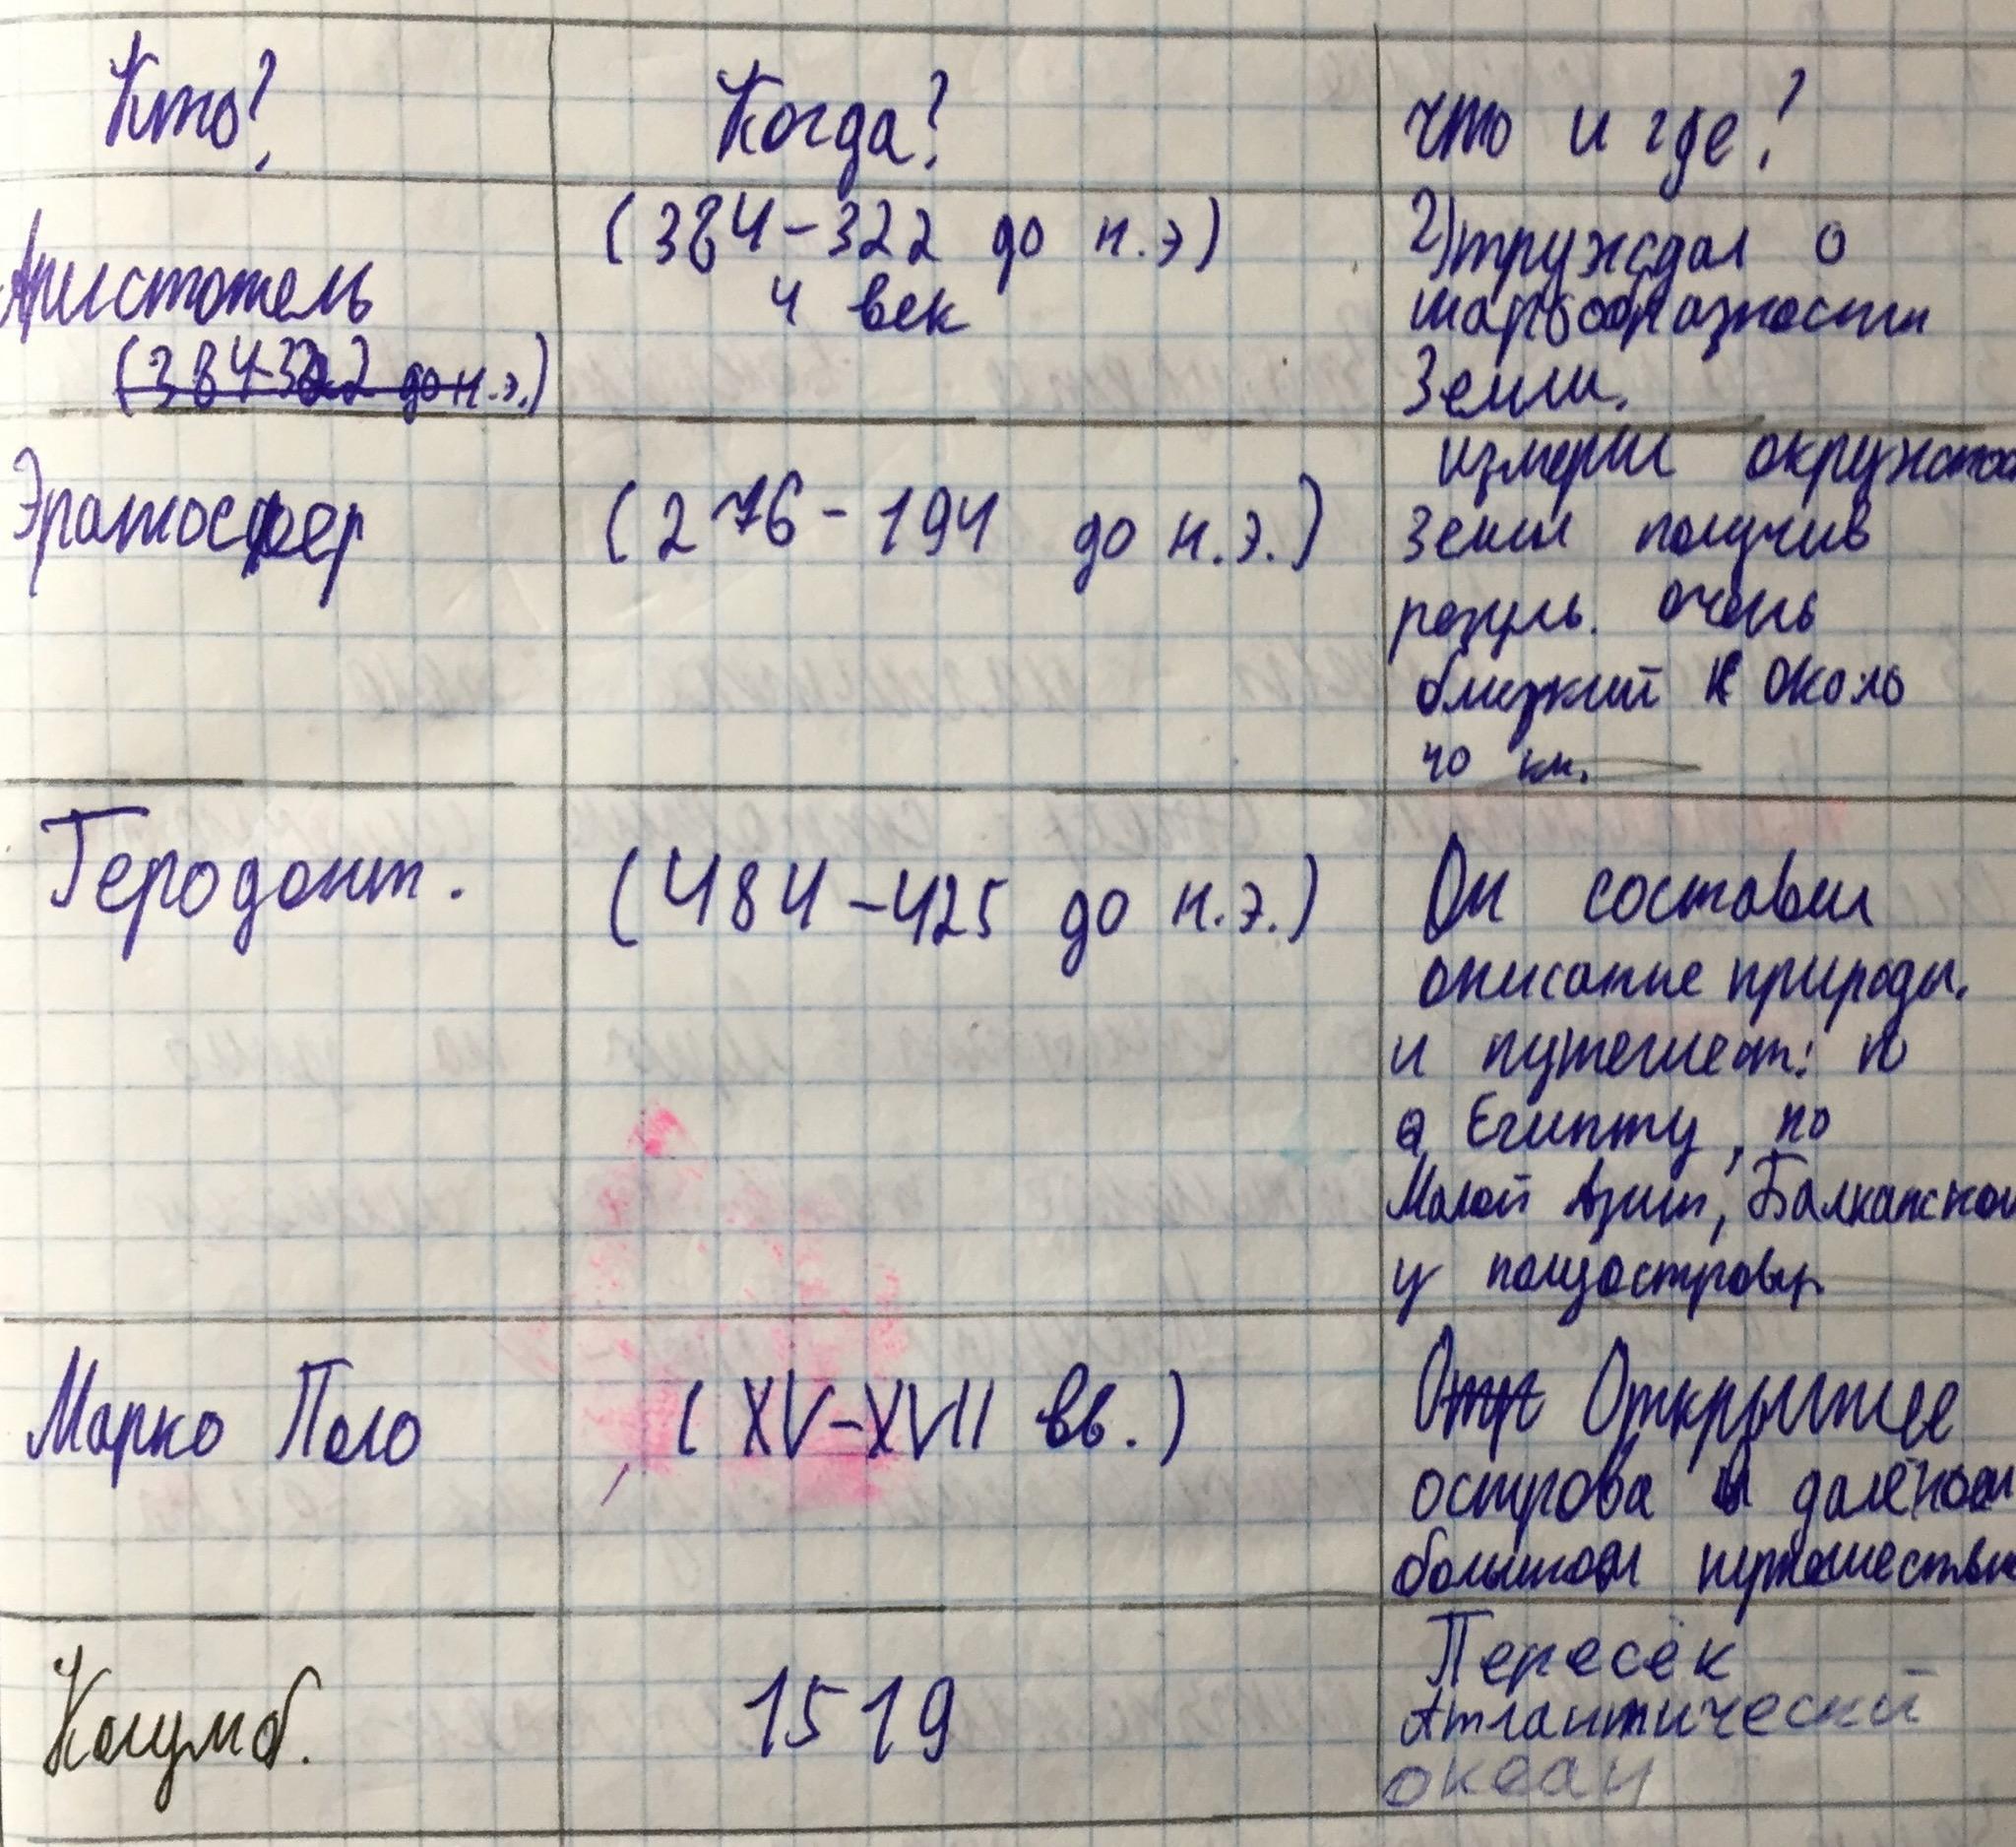 Кто? Когда? Что и где?
Аристотель (384-322 до н.э)
4 век
(384-322 до н.э.)
2) тружедал о
шарообразности
Земли.
Эратосфер (276-194 до н.э.)
измерил окружнос
земли получив
резуль. очень
близкий к около
40 км.
Геродонт. (484-425 до н.э.)
Он составил
описание природы.
и путешест: по
Египту, по
Малой Азии, Балканском
у полуострову.
Марко Поло (XV-XVII вв.)
Открытие
острова в далёком
большом путешестви
Колумб. 1519
Пересёк
Атлантический
океан